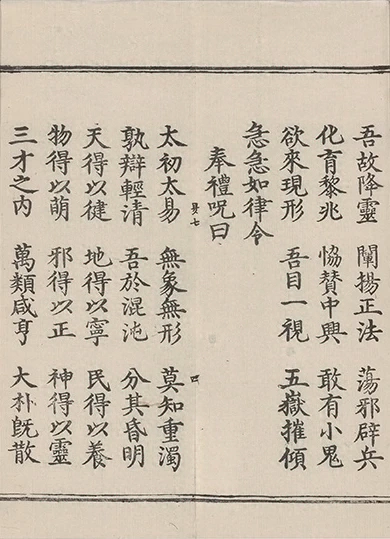 吾故降靈　闡揚正法　蕩邪辟兵
化育黎兆　恊賛中興　敢有小鬼
欲來現形　吾目一視　五嶽摧傾
急急如律令
奉禮呪曰
太初太易　無象無形　莫知重濁
孰辯輕清　吾於混沌　分其昏明
天得以健　地得以寧　民得以養
物得以萌　邪得以正　神得以靈
三才之内　萬類咸亨　大朴旣散